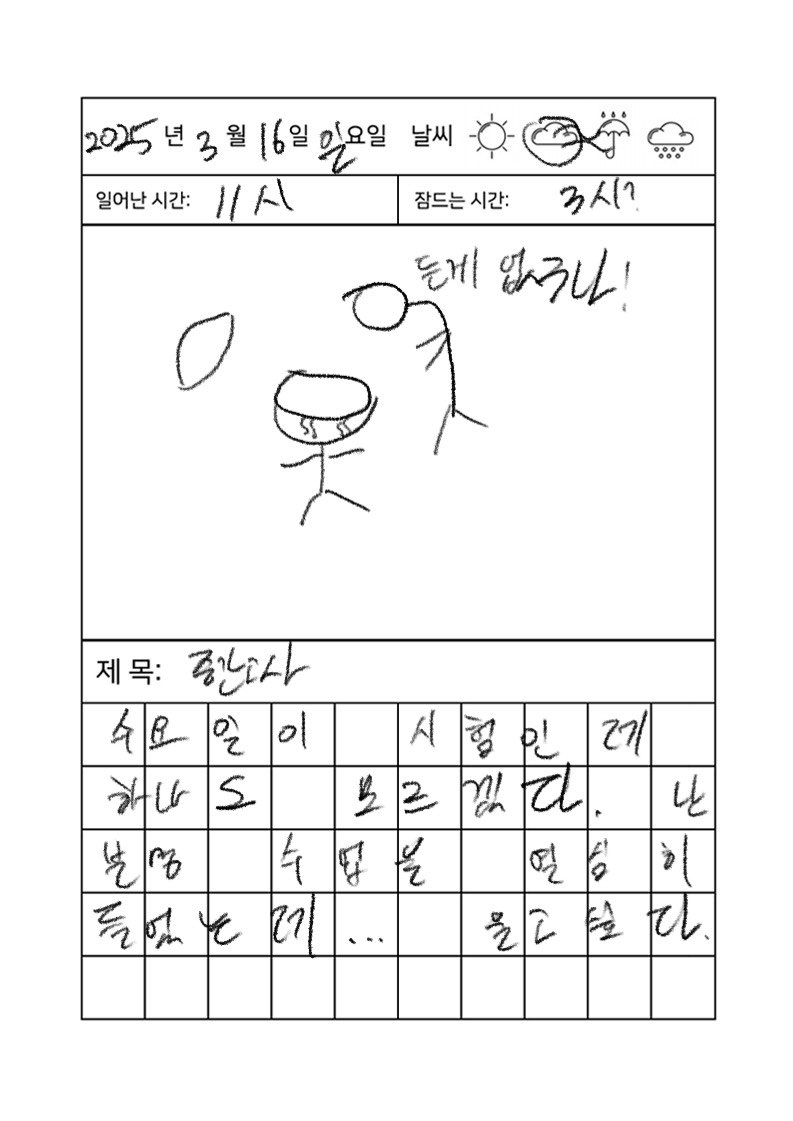 2025 년 3 월 16 일 일요일 날씨
일어난 시간: 11시 잠드는 시간: 3시?
든게 없구나!
제 목: 중간고사
수요일이 시험인데
하나도 모르겠다. 난
분명 수업을 열심히
들었는데... 울고싶다.